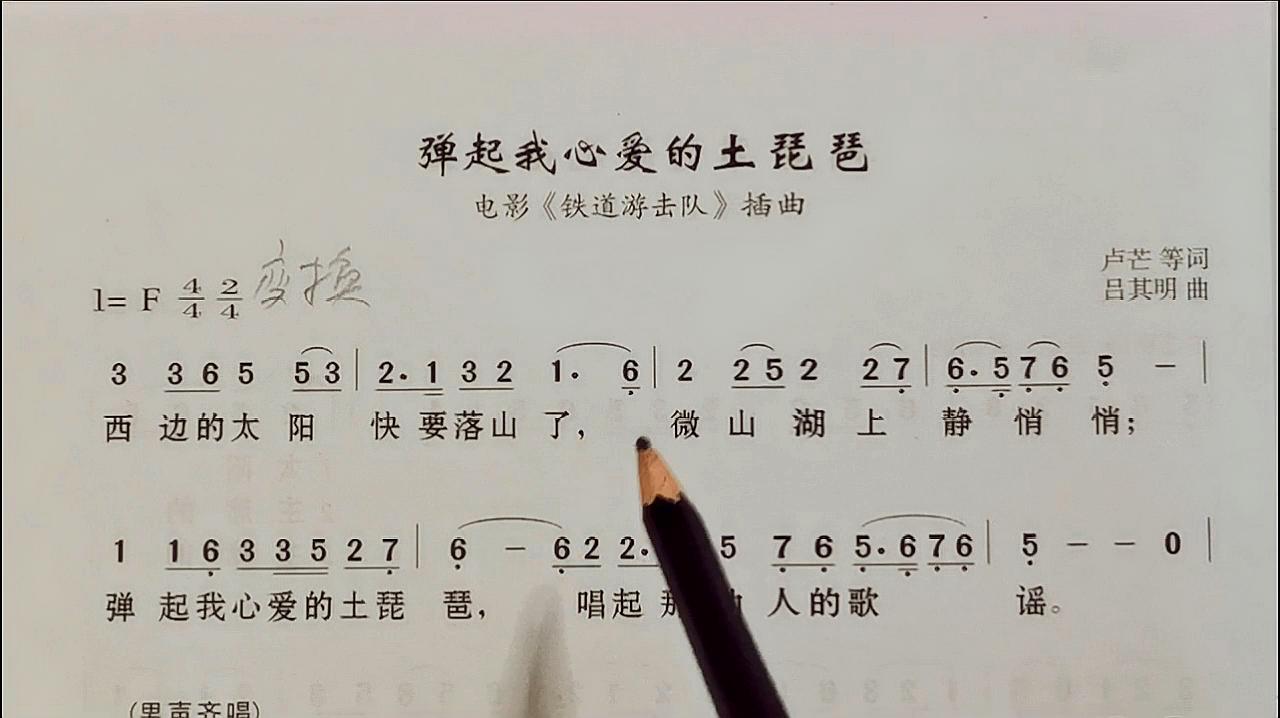 弹起我心爱的土琵琶
电影《铁道游击队》插曲
卢芒 等词
1= F 4/4 2/4 变换
吕其明 曲
3 3 6 5 5 3 | 2. 1 3 2 1. 6 | 2 2 5 2 2 7 | 6. 5 7 6 5 - |
西边的太阳 快要落山了, 微山湖上静悄悄;
1 1 6 3 3 5 2 7 | 6 - 6 2 2. 5 7 6 5. 6 7 6 | 5 - - 0 |
弹起我心爱的土琵琶, 唱起 人的歌 谣。
(男声齐唱)